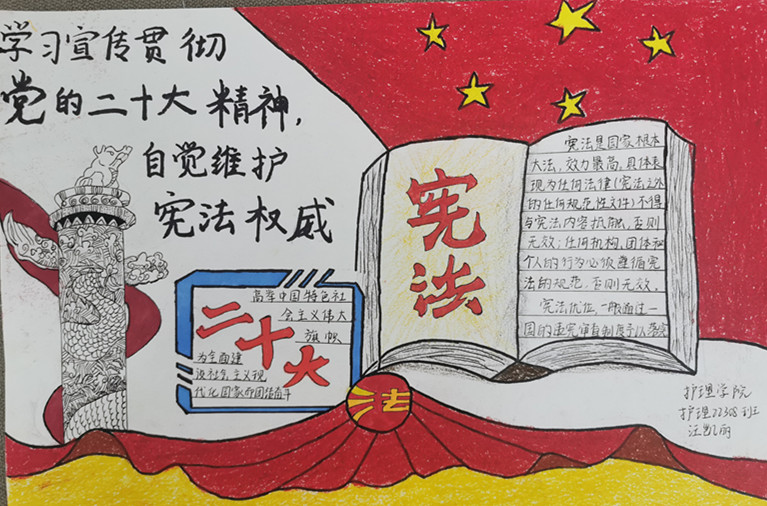 学习宣传贯彻
党的二十大精神，
自觉维护
宪法权威
高举中国特色社
会主义伟大
旗帜
二十大
为全面建
设社会主义现
代化国家而团结奋斗
法
宪法
宪法是国家根本
大法，效力最高，具体表
现为任何法律（宪法之外
的任何规范性文件）不得
与宪法内容抵触，否则
无效；任何机构，团体和
个人的行为必须遵循宪
法的规范，否则无效。
宪法优位，一般通过一
国的违宪审查制度予以落实
护理学院
护理22308班
汪凯丽